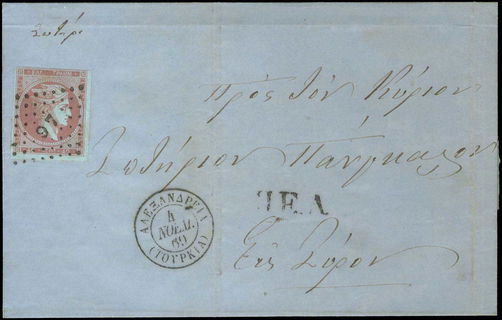 Σωτήρι
ΕΛΛ. ΓΡΑΜΜ.
97
Πρὸς τὸν Κύριον
Σωτήριον
ΠΕΛ
ΑΛΕΞΑΝΔΡΕΙΑ
4
ΝΟΕΜ.
69
(ΤΟΥΡΚΙΑ)
Εἰς Σύρον